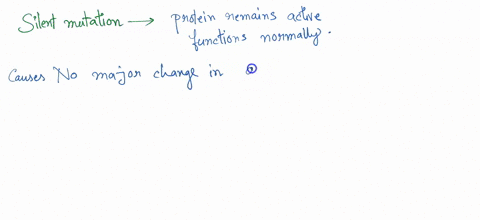 Silent mutation → protein remains active
functions normally.
Causes No major change in